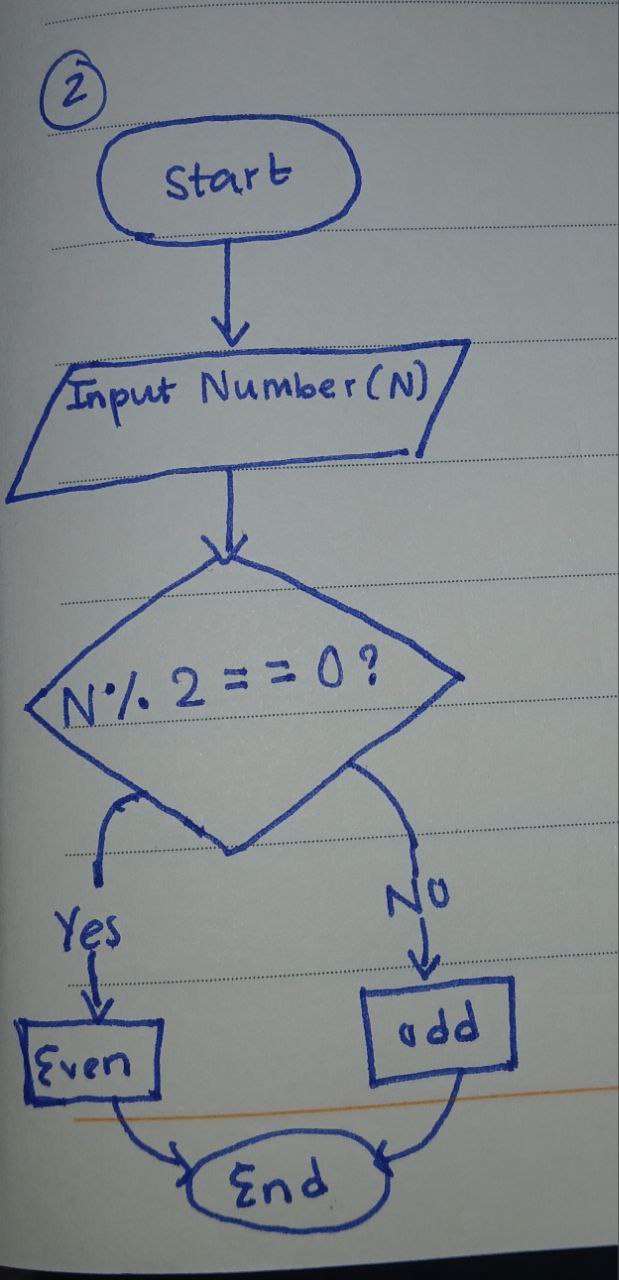 2
Start
Input Number (N)
N % 2 == 0?
Yes
No
Even
odd
End